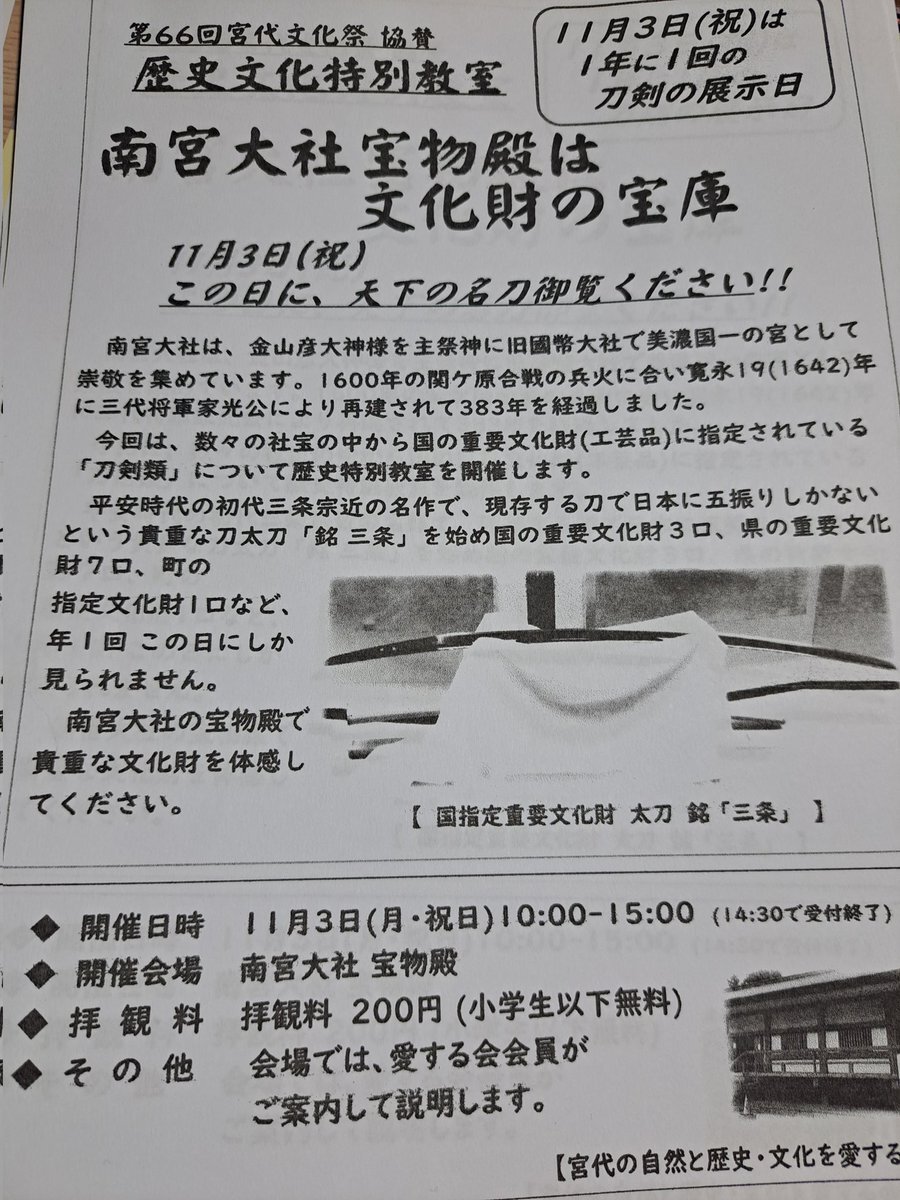 第66回宮代文化祭 協賛
歴史文化特別教室
11月3日(祝)は
1年に1回の
刀剣の展示日
南宮大社宝物殿は
文化財の宝庫
11月3日(祝)
この日に、天下の名刀御覧ください!!
南宮大社は、金山彦大神様を主祭神に旧國幣大社で美濃国一の宮として
崇敬を集めています。1600年の関ケ原合戦の兵火に合い寛永19(1642)年
に三代将軍家光公により再建されて383年を経過しました。
今回は、数々の社宝の中から国の重要文化財(工芸品)に指定されている
「刀剣類」について歴史特別教室を開催します。
平安時代の初代三条宗近の名作で、現存する刀で日本に五振りしかない
という貴重な刀太刀「銘 三条」を始め国の重要文化財3口、県の重要文化
財7口、町の
指定文化財1口など、
年1回 この日にしか
見られません。
南宮大社の宝物殿で
貴重な文化財を体感し
てください。
【 国指定重要文化財 太刀 銘「三条」 】
◆ 開催日時 11月3日(月・祝日)10:00-15:00 (14:30で受付終了)
◆ 開催会場 南宮大社 宝物殿
◆ 拝観料 拝観料 200円 (小学生以下無料)
◆ その他 会場では、愛する会会員が
ご案内して説明します。
【宮代の自然と歴史・文化を愛する